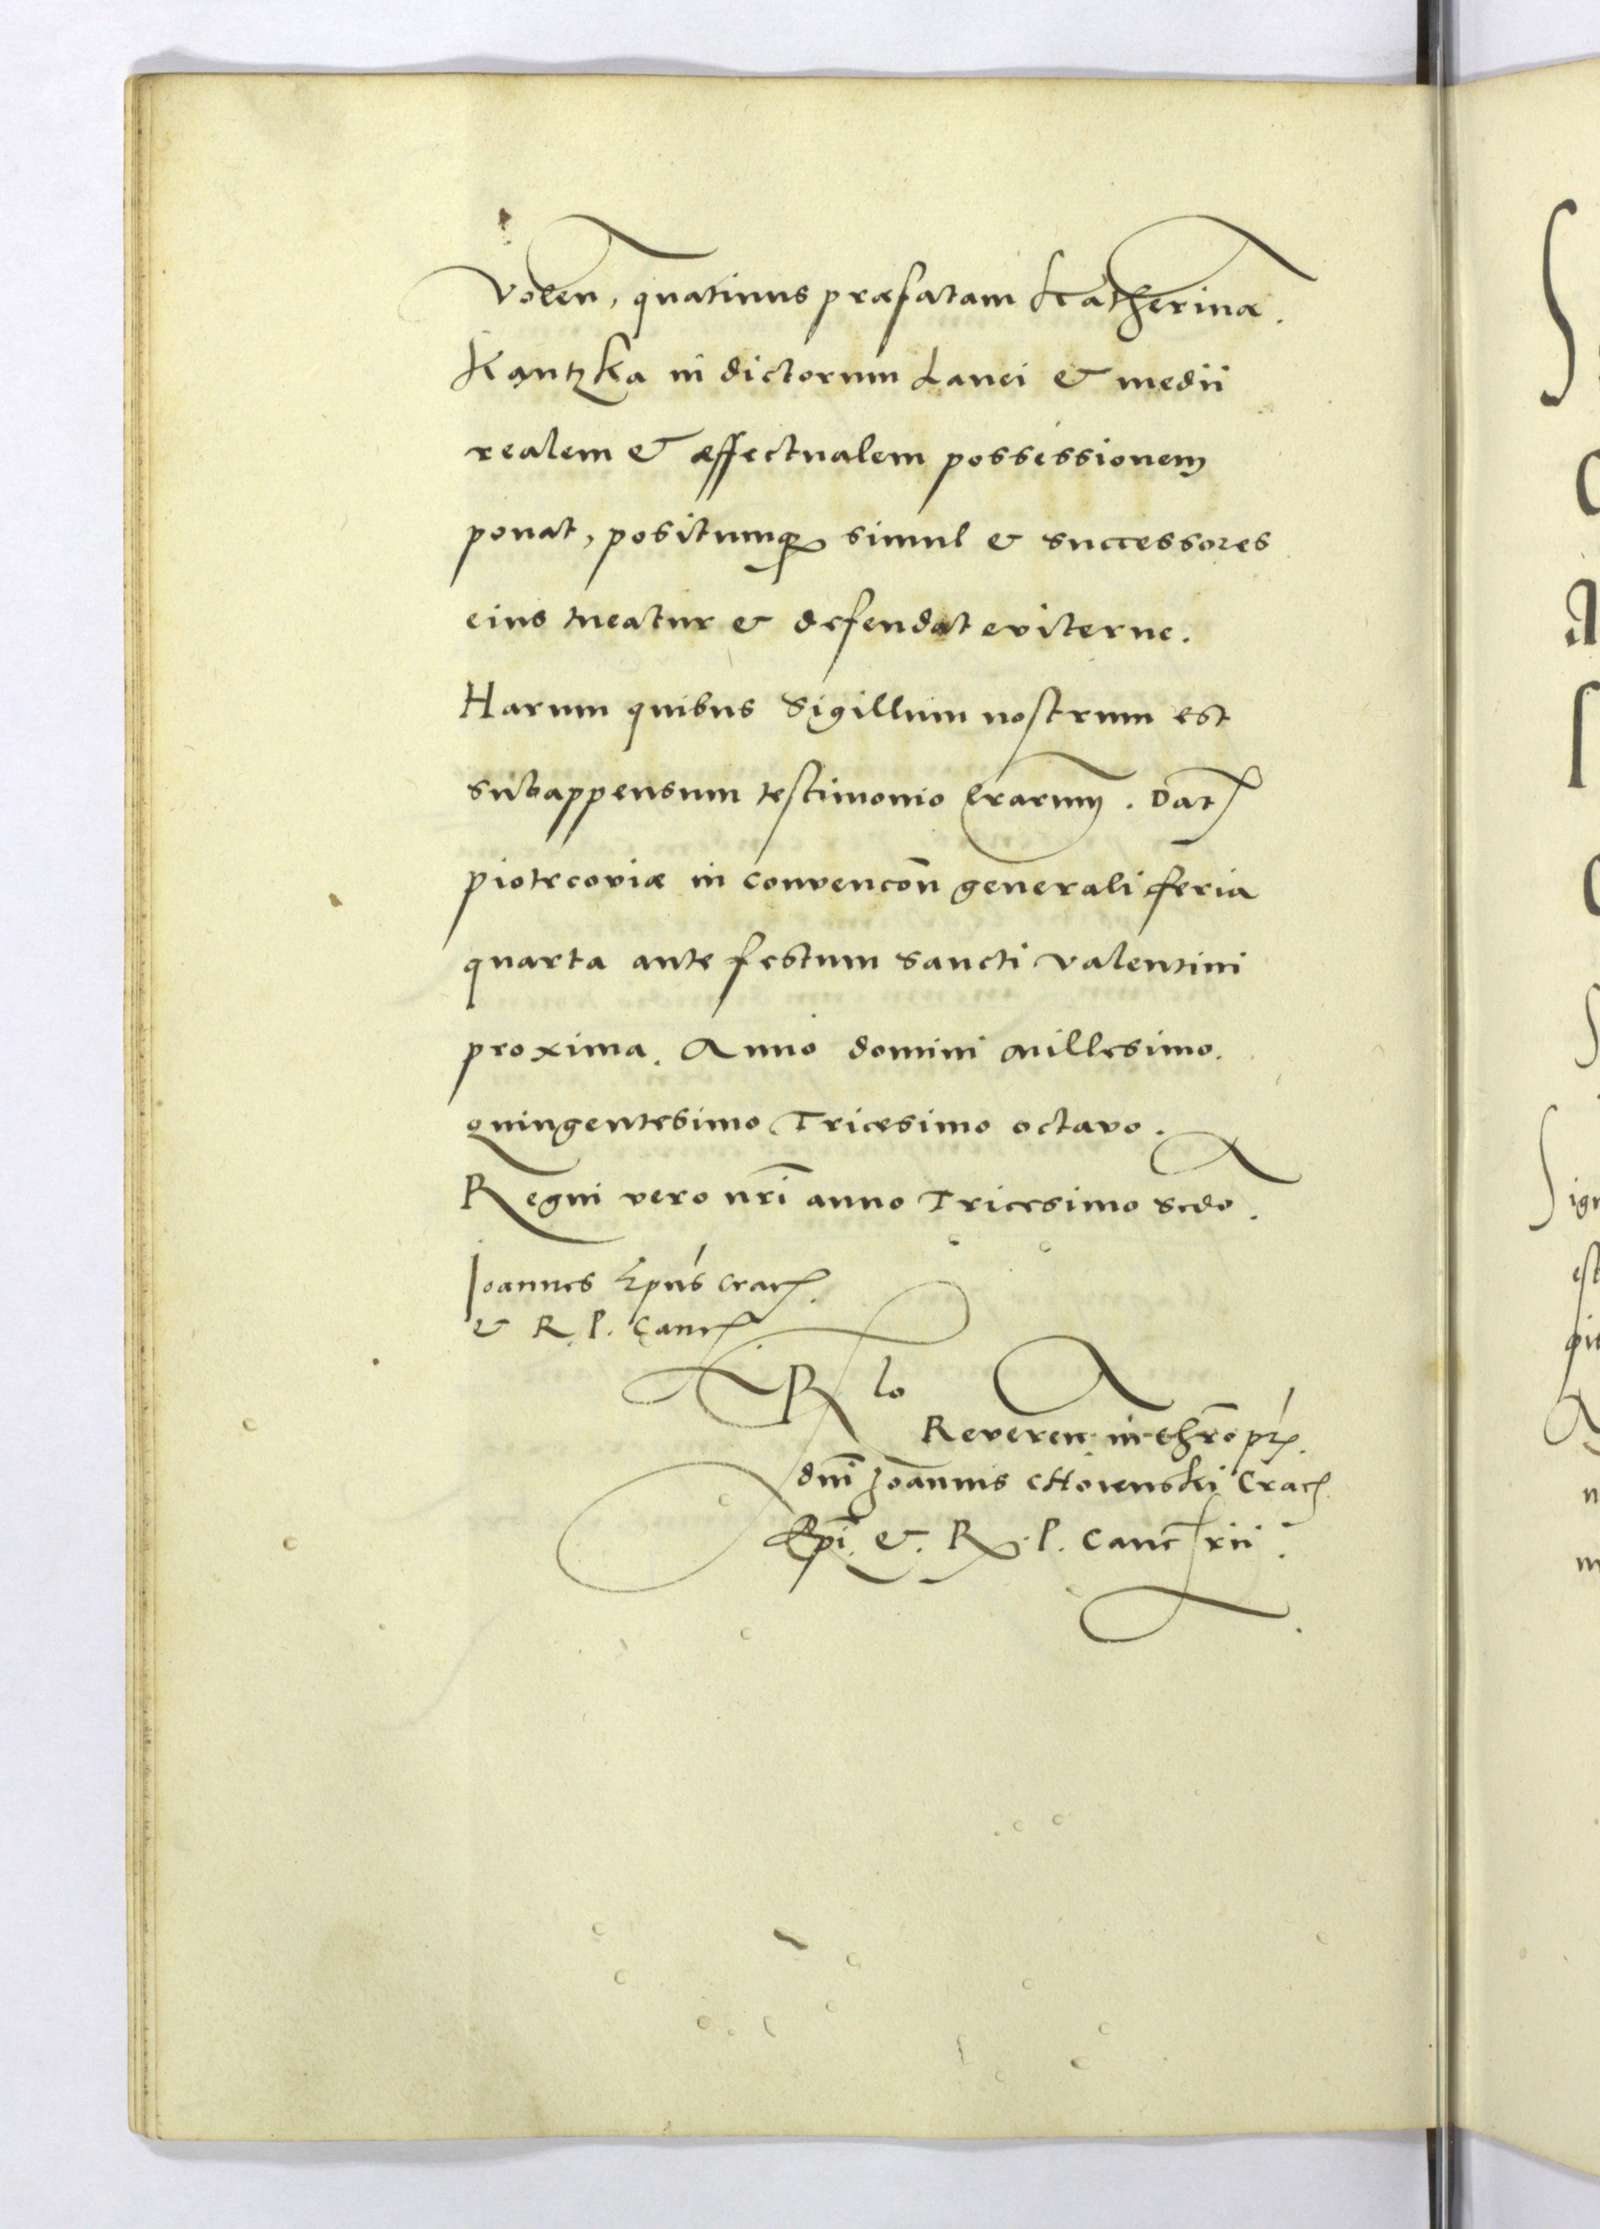 Volen, quatinus præfatam Katherinā.
Kantzka in dictorum Lanei & medii
realem & æffectualem possessionem
ponat, positumq simul & successores
eius tueatur & defendat eviterne.
Harum quibus Sigillum nostrum est
subappensum testimonio lrarum. Dat
piotrcoviæ in convencoñ generali feria
quarta ante festum sancti valentini
proxima. Anno domini Millesimo.
quingentesimo Tricesimo octavo.
Regni vero nrī anno Tricesimo scdo.
Joannes Epūs Crac.
& R. P. Canc
Rlo
Reveren in chrō prs.
dnī Joannis CHoienski Crac
Epī. & R. P. Canc rii.